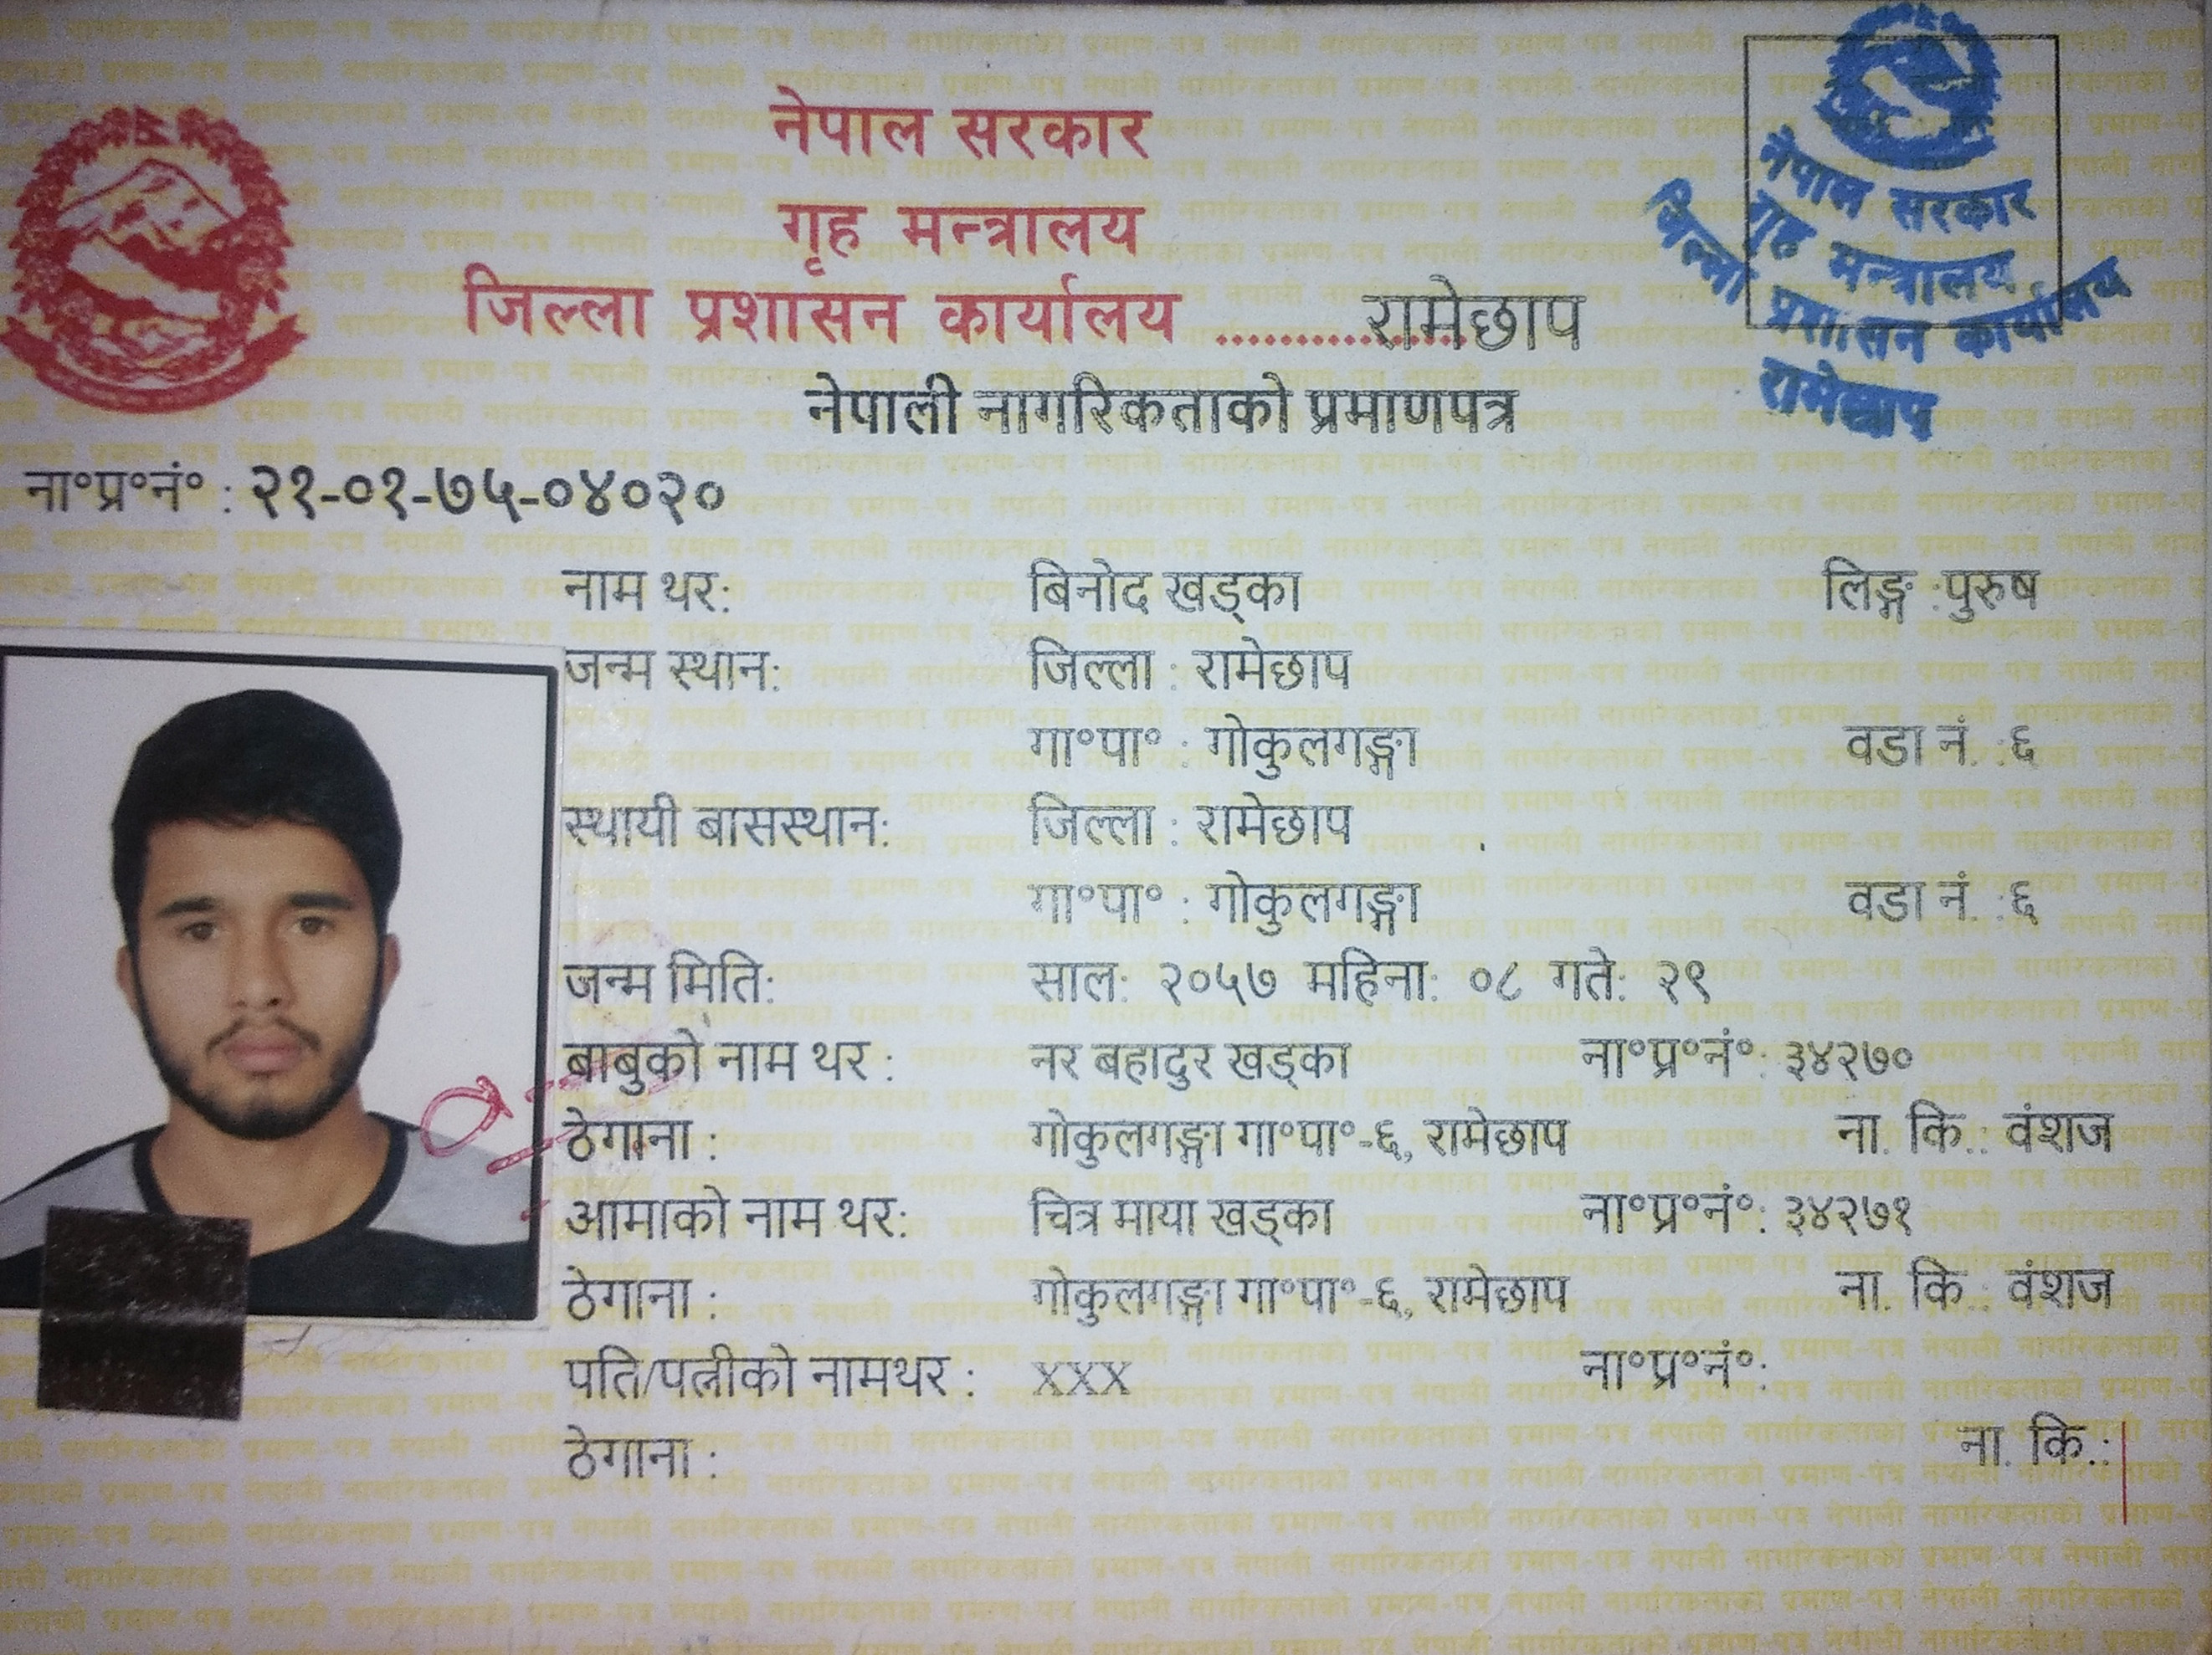 नेपाल सरकार
गृह मन्त्रालय
जिल्ला प्रशासन कार्यालय ................रामेछाप
नेपाल सरकार
गृह मन्त्रालय
जिल्ला प्रशासन कार्यालय
रामेछाप
नेपाली नागरिकताको प्रमाणपत्र
ना॰प्र॰नं॰ : २१-०१-७५-०४०२०
नाम थर: बिनोद खड्का लिङ्ग :पुरुष
जन्म स्थान: जिल्ला : रामेछाप
गा॰पा॰ : गोकुलगङ्गा वडा नं. :६
स्थायी बासस्थान: जिल्ला : रामेछाप
गा॰पा॰ : गोकुलगङ्गा वडा नं. :६
जन्म मिति: साल: २०५७ महिना: ०८ गते: २९
बाबुको नाम थर : नर बहादुर खड्का ना॰प्र॰नं॰: ३४२७०
ठेगाना : गोकुलगङ्गा गा॰पा॰-६, रामेछाप ना. कि.: वंशज
आमाको नाम थर: चित्र माया खड्का ना॰प्र॰नं॰: ३४२७१
ठेगाना : गोकुलगङ्गा गा॰पा॰-६, रामेछाप ना. कि.: वंशज
पति/पत्नीको नामथर : xxx ना॰प्र॰नं॰:
ठेगाना : ना. कि.: